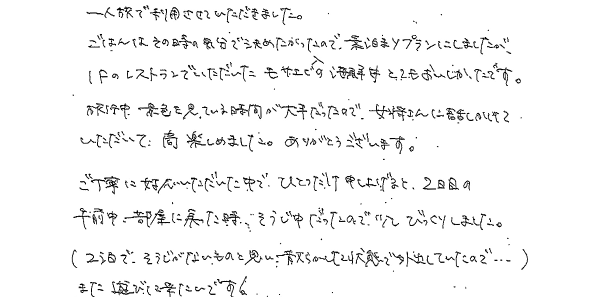 一人旅で利用させていただきました。
ごはんはその時の気分で決めたかったので、素泊まりプランにしましたが、
1Fのレストランでいただいた モサエビの海鮮丼 とてもおいしかったです。
旅行中 景色を見ている時間が大半だったので、女将さんに話しかけて
いただいて、楽しめました。ありがとうございます。
ご丁寧に対応いただいた中で、ひとつだけ申し上げると、2日目の
午前中、部屋に戻った時、そうじ中だったので、少しびっくりしました。
(2泊で、そうじがないものと思い、散らかした状態で外出していたので…)
また遊びに来たいです。